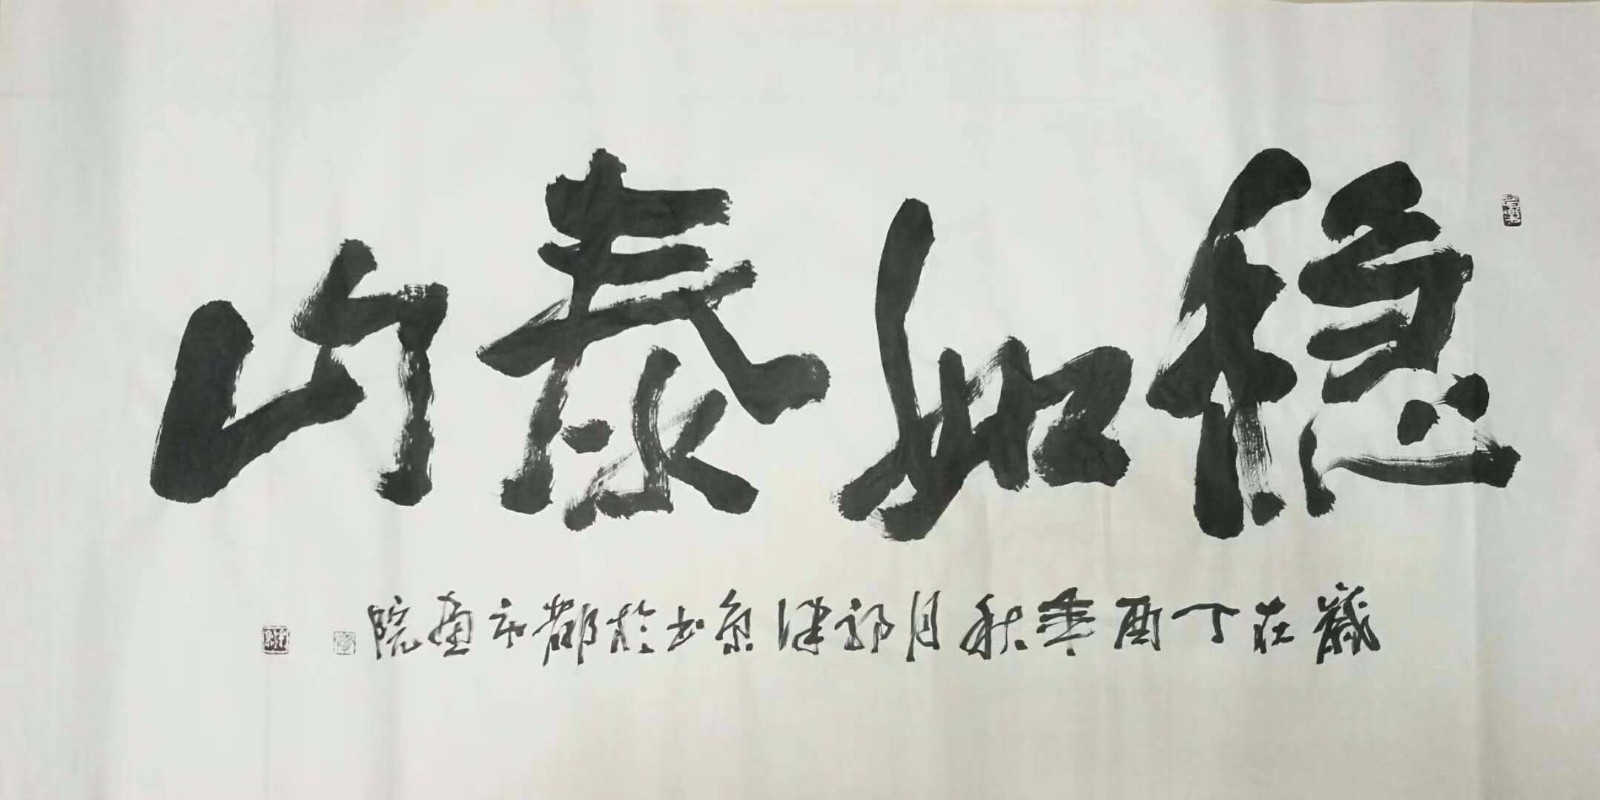 稳如泰山
歲在丁酉季秋月郭津京书於都市画院